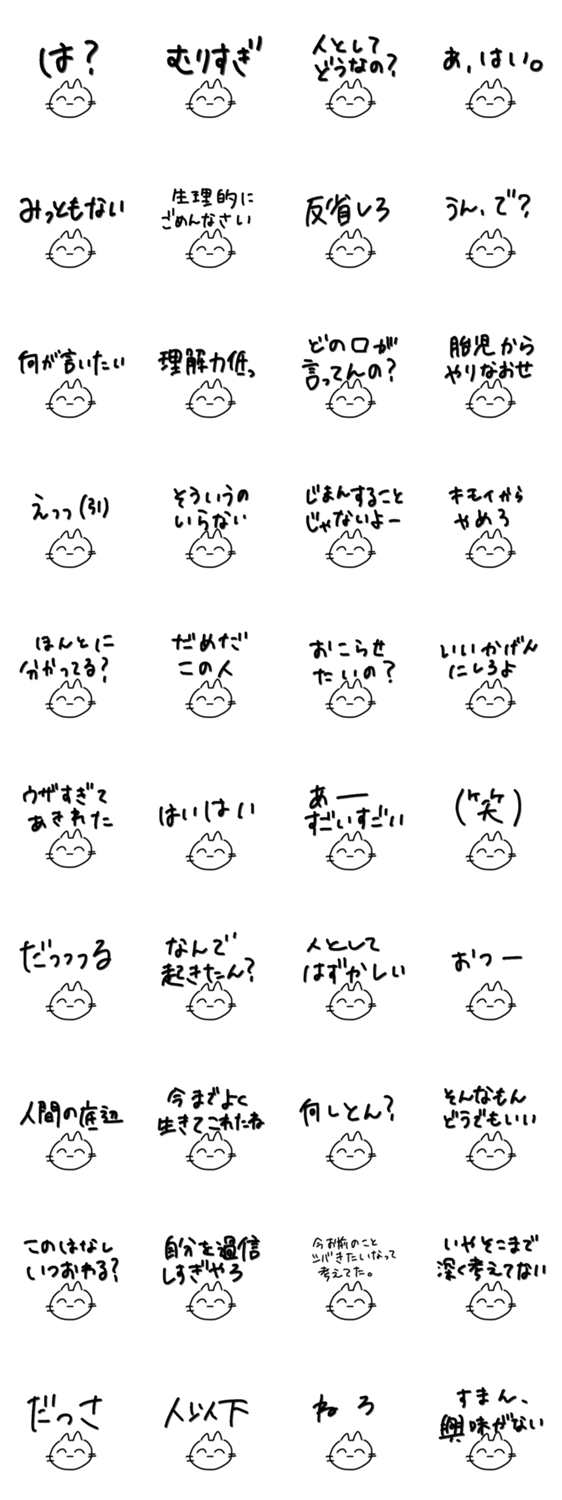 は？
むりすぎ
人として
どうなの？
あ、はい。
みっともない
生理的に
ごめんなさい
反省しろ
うん、で？
何が言いたい
理解力低っ
どの口が
言ってんの？
胎児から
やりなおせ
えっっ(引)
そういうの
いらない
じまんすること
じゃないよー
キモイから
やめろ
ほんとに
分かってる？
だめだ
この人
おこらせ
たいの？
いいかげん
にしろよ
ウザすぎて
あきれた
はいはい
あー
すごいすごい
(笑)
だっっっる
なんで
起きたん？
人として
はずかしい
おつー
人間の底辺
今までよく
生きてこれたね
何しとん？
そんなもん
どうでもいい
このはなし
いつおわる？
自分を過信
しすぎやろ
今お前のこと
シバきたいなって
考えてた。
いやそこまで
深く考えてない
だっさ
人以下
ねろ
すまん、
興味がない